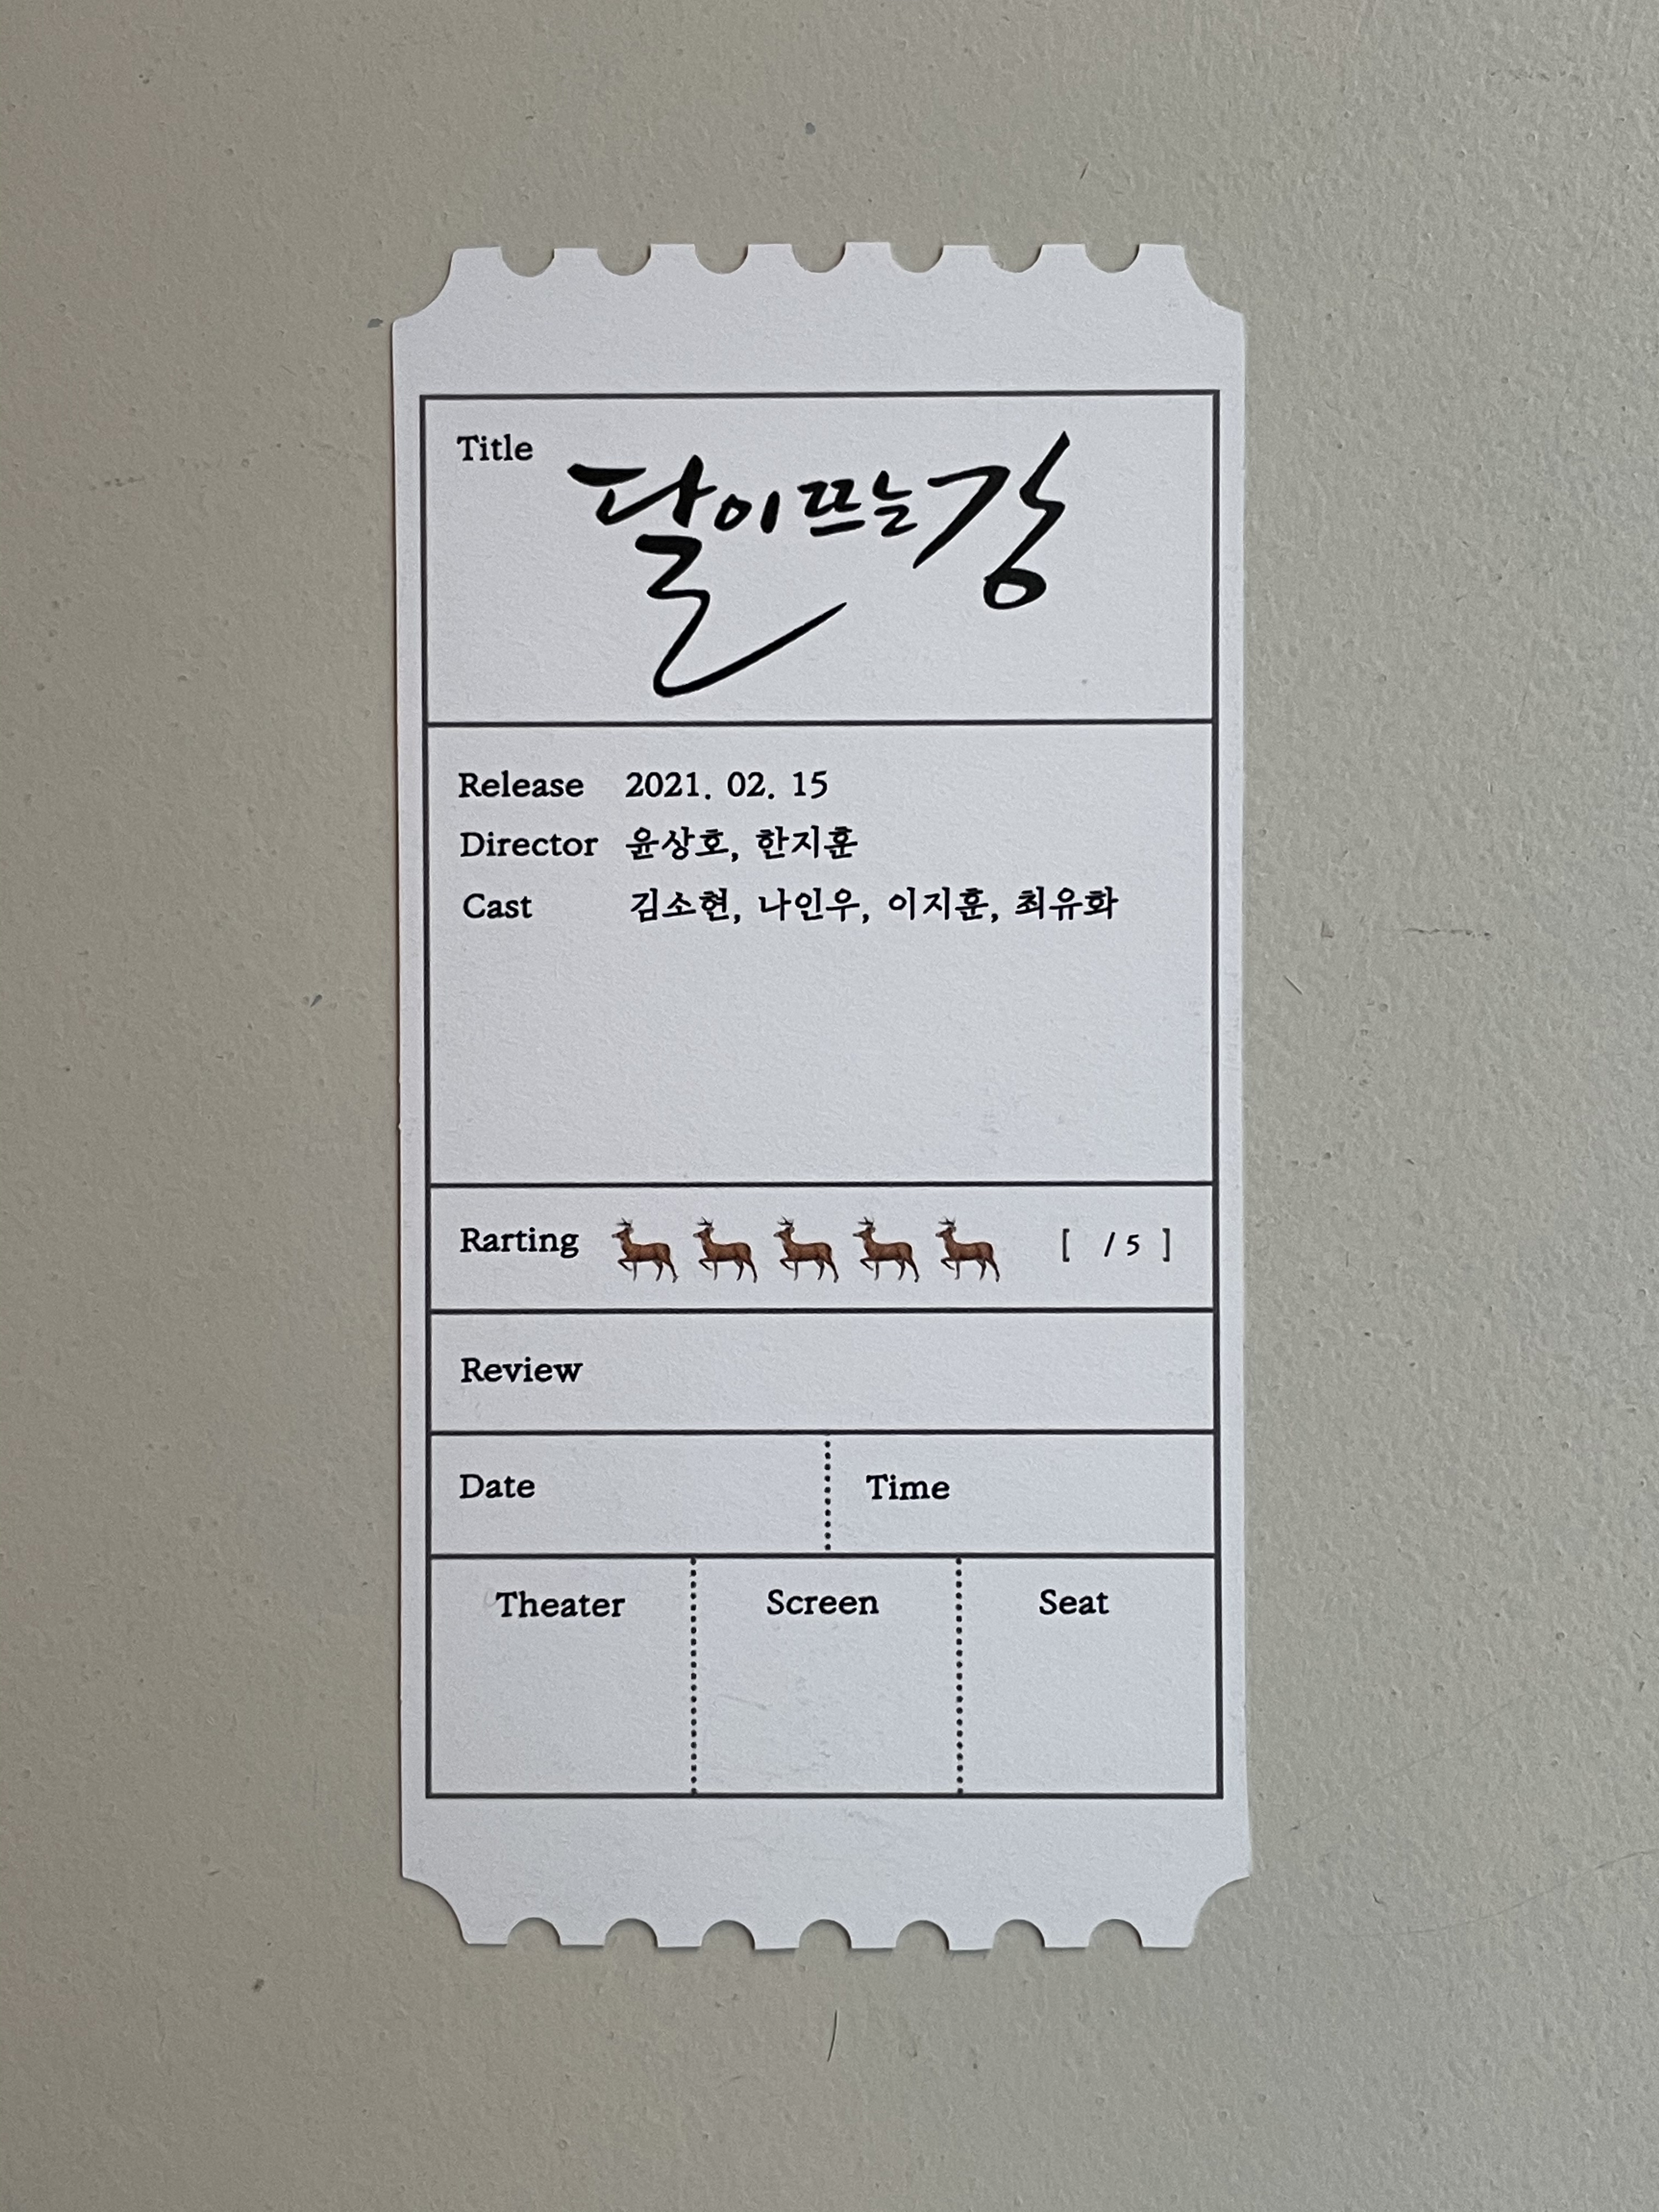 Title 달이 뜨는 강
Release 2021. 02. 15
Director 윤상호, 한지훈
Cast 김소현, 나인우, 이지훈, 최유화
Rarting [ / 5 ]
Review
Date Time
Theater Screen Seat